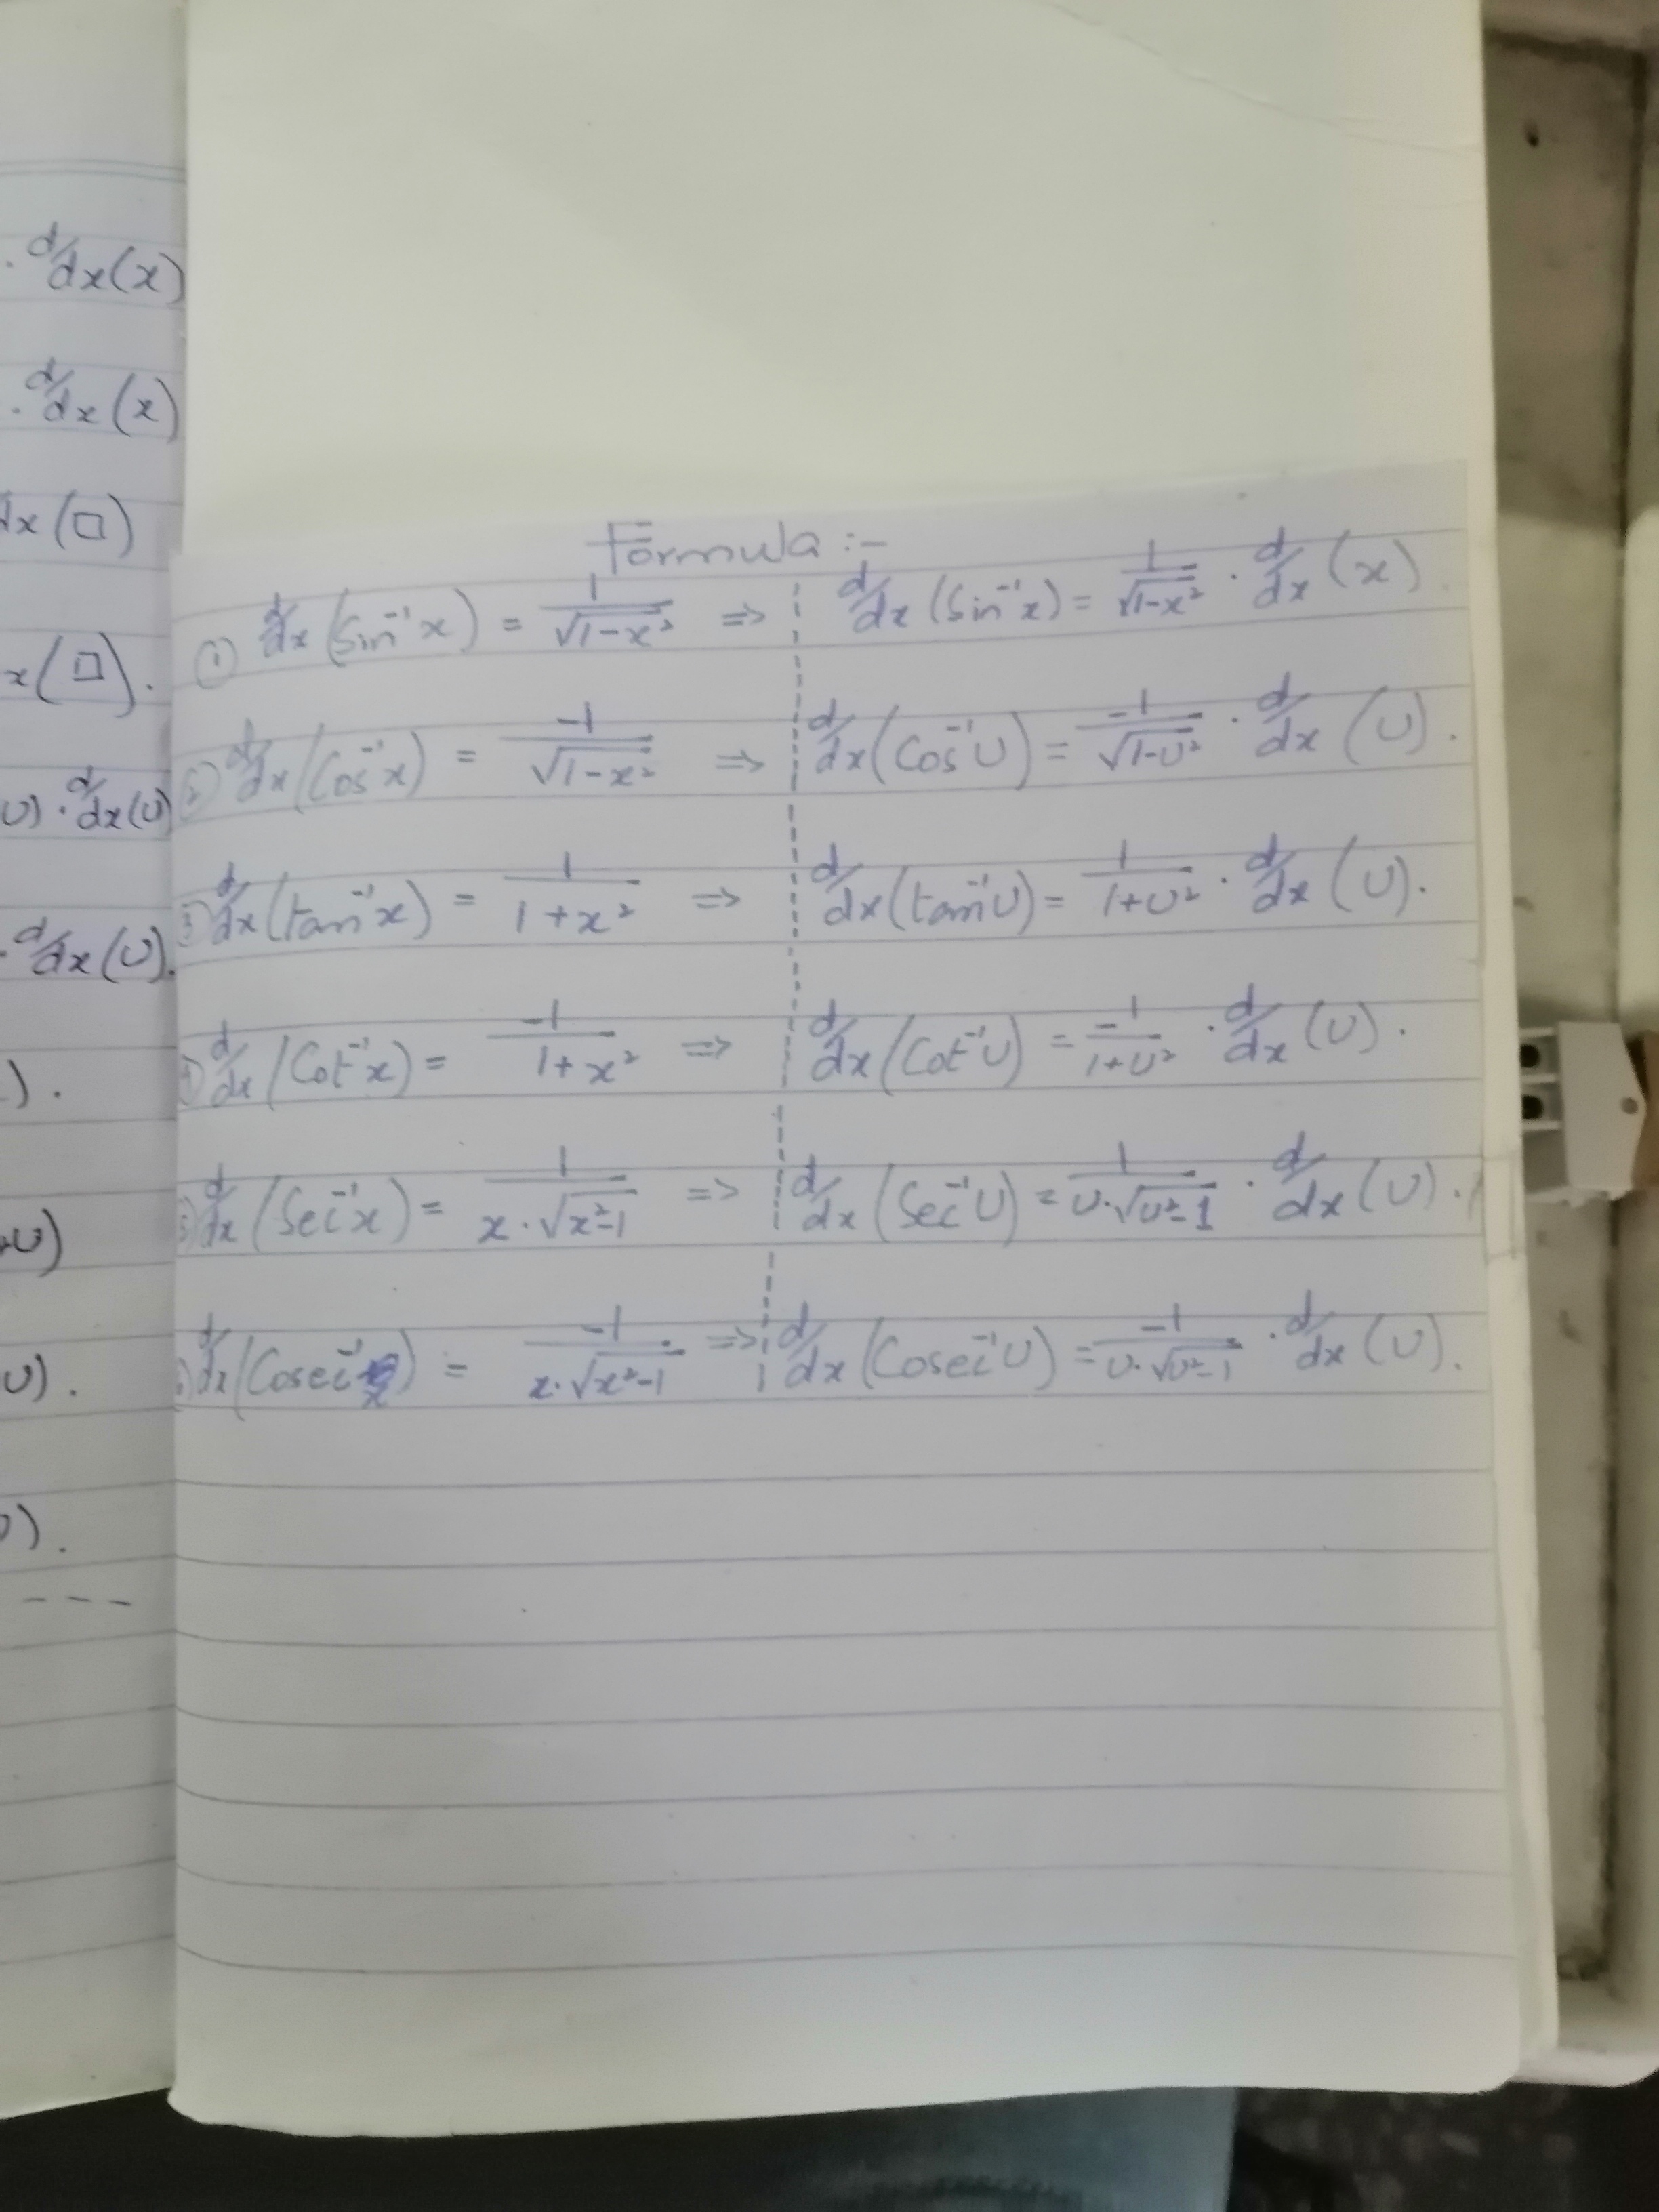 . d/dx (x)
. d/dx (x)
dx (□)
x (□).
U) . d/dx (U)
. d/dx (U).
) .
U)
U) .
) .
- - -
Formula :-
① d/dx (Sin⁻¹x) = 1/√(1-x²) => d/dx (Sin⁻¹x) = 1/√(1-x²) . d/dx (x).
② d/dx (Cos⁻¹x) = -1/√(1-x²) => d/dx (Cos⁻¹U) = -1/√(1-U²) . d/dx (U).
③ d/dx (tan⁻¹x) = 1/(1+x²) => d/dx (tan⁻¹U) = 1/(1+U²) . d/dx (U).
④ d/dx (Cot⁻¹x) = -1/(1+x²) => d/dx (Cot⁻¹U) = -1/(1+U²) . d/dx (U).
⑤ d/dx (Sec⁻¹x) = 1/(x.√(x²-1)) => d/dx (Sec⁻¹U) = 1/(U.√(U²-1)) . d/dx (U).
d/dx (Cosec⁻¹x) = -1/(x.√(x²-1)) => d/dx (Cosec⁻¹U) = -1/(U.√(U²-1)) . d/dx (U).